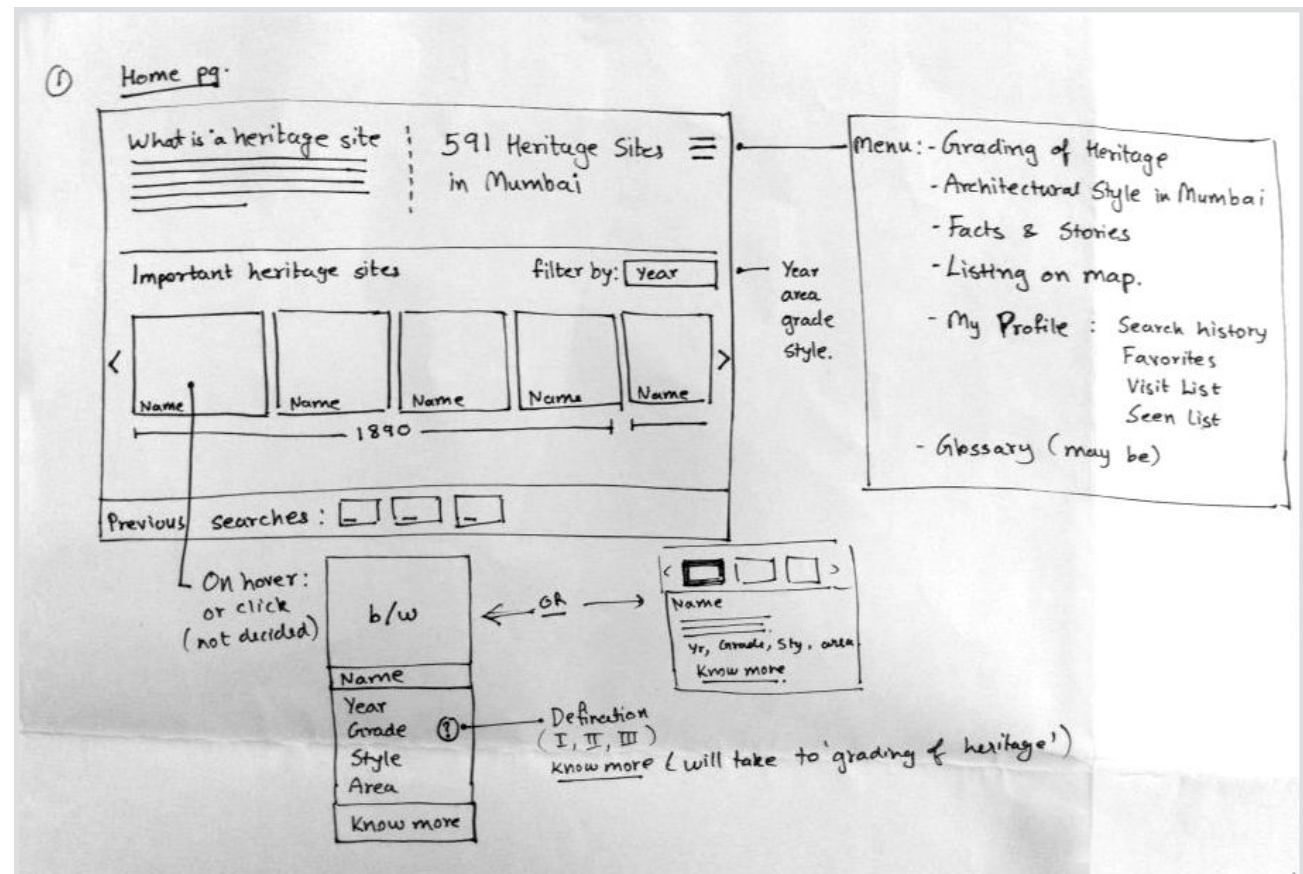 ① Home pg.
What is a heritage site
591 Heritage Sites
in Mumbai
Important heritage sites
filter by: Year
Year
area
grade
style.
Name
Name
Name
Name
Name
1890
Previous searches:
Menu: - Grading of Heritage
- Architectural Style in Mumbai
- Facts & Stories
- Listing on map.
- My Profile : Search history
Favorites
Visit List
Seen List
- Glossary (may be)
On hover:
or click
(not decided)
b/w
Name
Year
Grade ?
Style
Area
Know more
OR
Name
Yr, Grade, Sty, area
Know more
Defination
(I, II, III)
Know more (will take to 'grading of heritage')